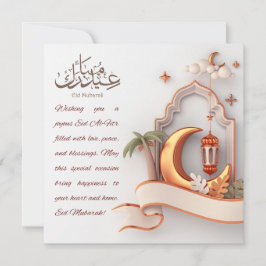 عيد مبارك
Eid Mubarak
Wishing you a
joyous Eid Al-Fitr
filled with love, peace,
and blessings. May
this special occasion
bring happiness to
your heart and home.
Eid Mubarak!